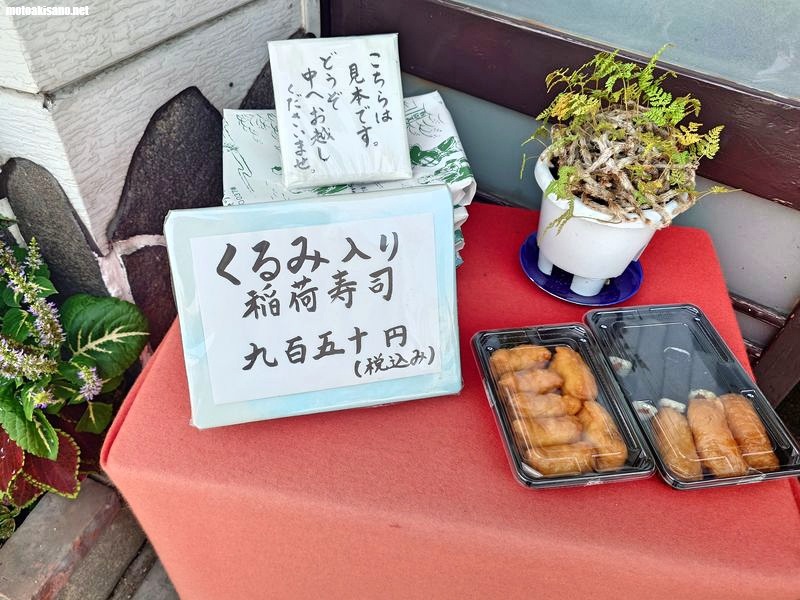 motoakisano.net
こちらは
見本です。
どうぞ
中へお越し
くださいませ。
くるみ入り
稲荷寿司
九百五十円
(税込み)